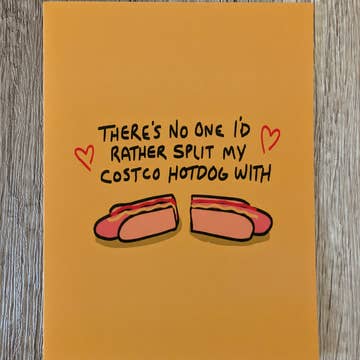 THERE'S NO ONE I'D
RATHER SPLIT MY
COSTCO HOTDOG WITH